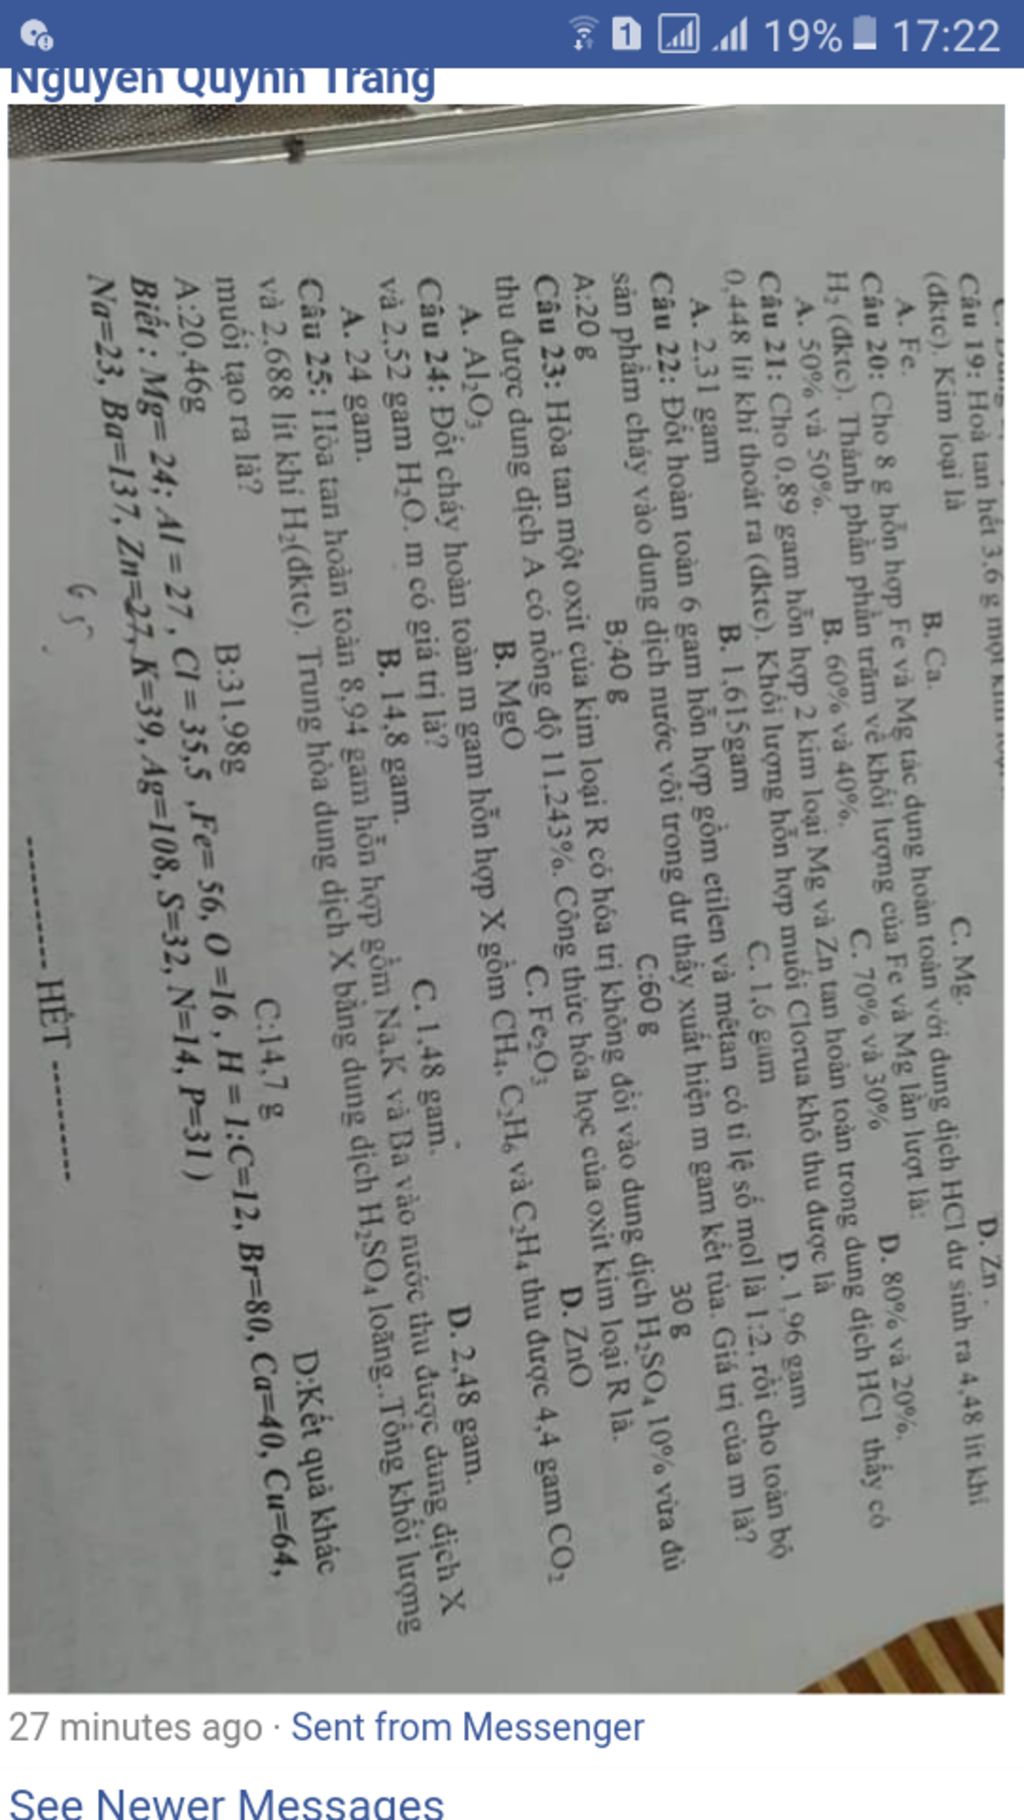 19% 17:22
Nguyen Quynh Trang
Câu 19: Hoà tan hết 3,6 g một
D. Zn .
C. Mg.
B. Ca.
A. Fe.
dung dịch HCl dư sinh ra 4,48 lít khí
(đktc). Kim loại là
Câu 20: Cho 8 g hỗn hợp Fe và Mg tác dụng hoàn toàn với
H₂ (đktc). Thành phần phần trăm về khối lượng của Fe và Mg lần lượt là:
A. 50% và 50%. B. 60% và 40%. C. 70% và 30% D. 80% và 20%.
Câu 21: Cho 0,89 gam hỗn hợp 2 kim loại Mg và Zn tan hoàn toàn trong dung dịch HCl thấy có
0,448 lít khí thoát ra (đktc). Khối lượng hỗn hợp muối Clorua khô thu được là
A. 2,31 gam B. 1,615gam C. 1,6 gam D. 1,96 gam
Câu 22: Đốt hoàn toàn 6 gam hỗn hợp gồm etilen và mêtan có tỉ lệ số mol là 1:2, rồi cho toàn bộ
sản phẩm cháy vào dung dịch nước vôi trong dư thấy xuất hiện m gam kết tủa. Giá trị của m là?
A:20 g B;40 g C:60 g 30 g
Câu 23: Hòa tan một oxit của kim loại R có hóa trị không đổi vào dung dịch H₂SO₄ 10% vừa đủ
thu được dung dịch A có nồng độ 11,243%. Công thức hóa học của oxit kim loại R là.
A. Al₂O₃ B. MgO C. Fe₂O₃ D. ZnO
Câu 24: Đốt cháy hoàn toàn m gam hỗn hợp X gồm CH₄, C₂H₆ và C₂H₄ thu được 4,4 gam CO₂
và 2,52 gam H₂O. m có giá trị là?
A. 24 gam. B. 14,8 gam. C. 1,48 gam. D. 2,48 gam.
Câu 25: Hòa tan hoàn toàn 8,94 gam hỗn hợp gồm Na,K và Ba vào nước thu được dung dịch X
và 2,688 lít khí H₂(đktc). Trung hòa dung dịch X bằng dung dịch H₂SO₄ loãng..Tổng khối lượng
muối tạo ra là?
A:20,46g B:31,98g C:14,7 g D:Kết quả khác
Biết : Mg= 24; Al = 27 , Cl = 35,5 ,Fe= 56, O =16 , H = 1:C=12, Br=80, Ca=40, Cu=64,
Na=23, Ba=137, Zn=27, K=39, Ag=108, S=32, N=14, P=31 )
65
---------- HẾT ----------
27 minutes ago · Sent from Messenger
See Newer Messages